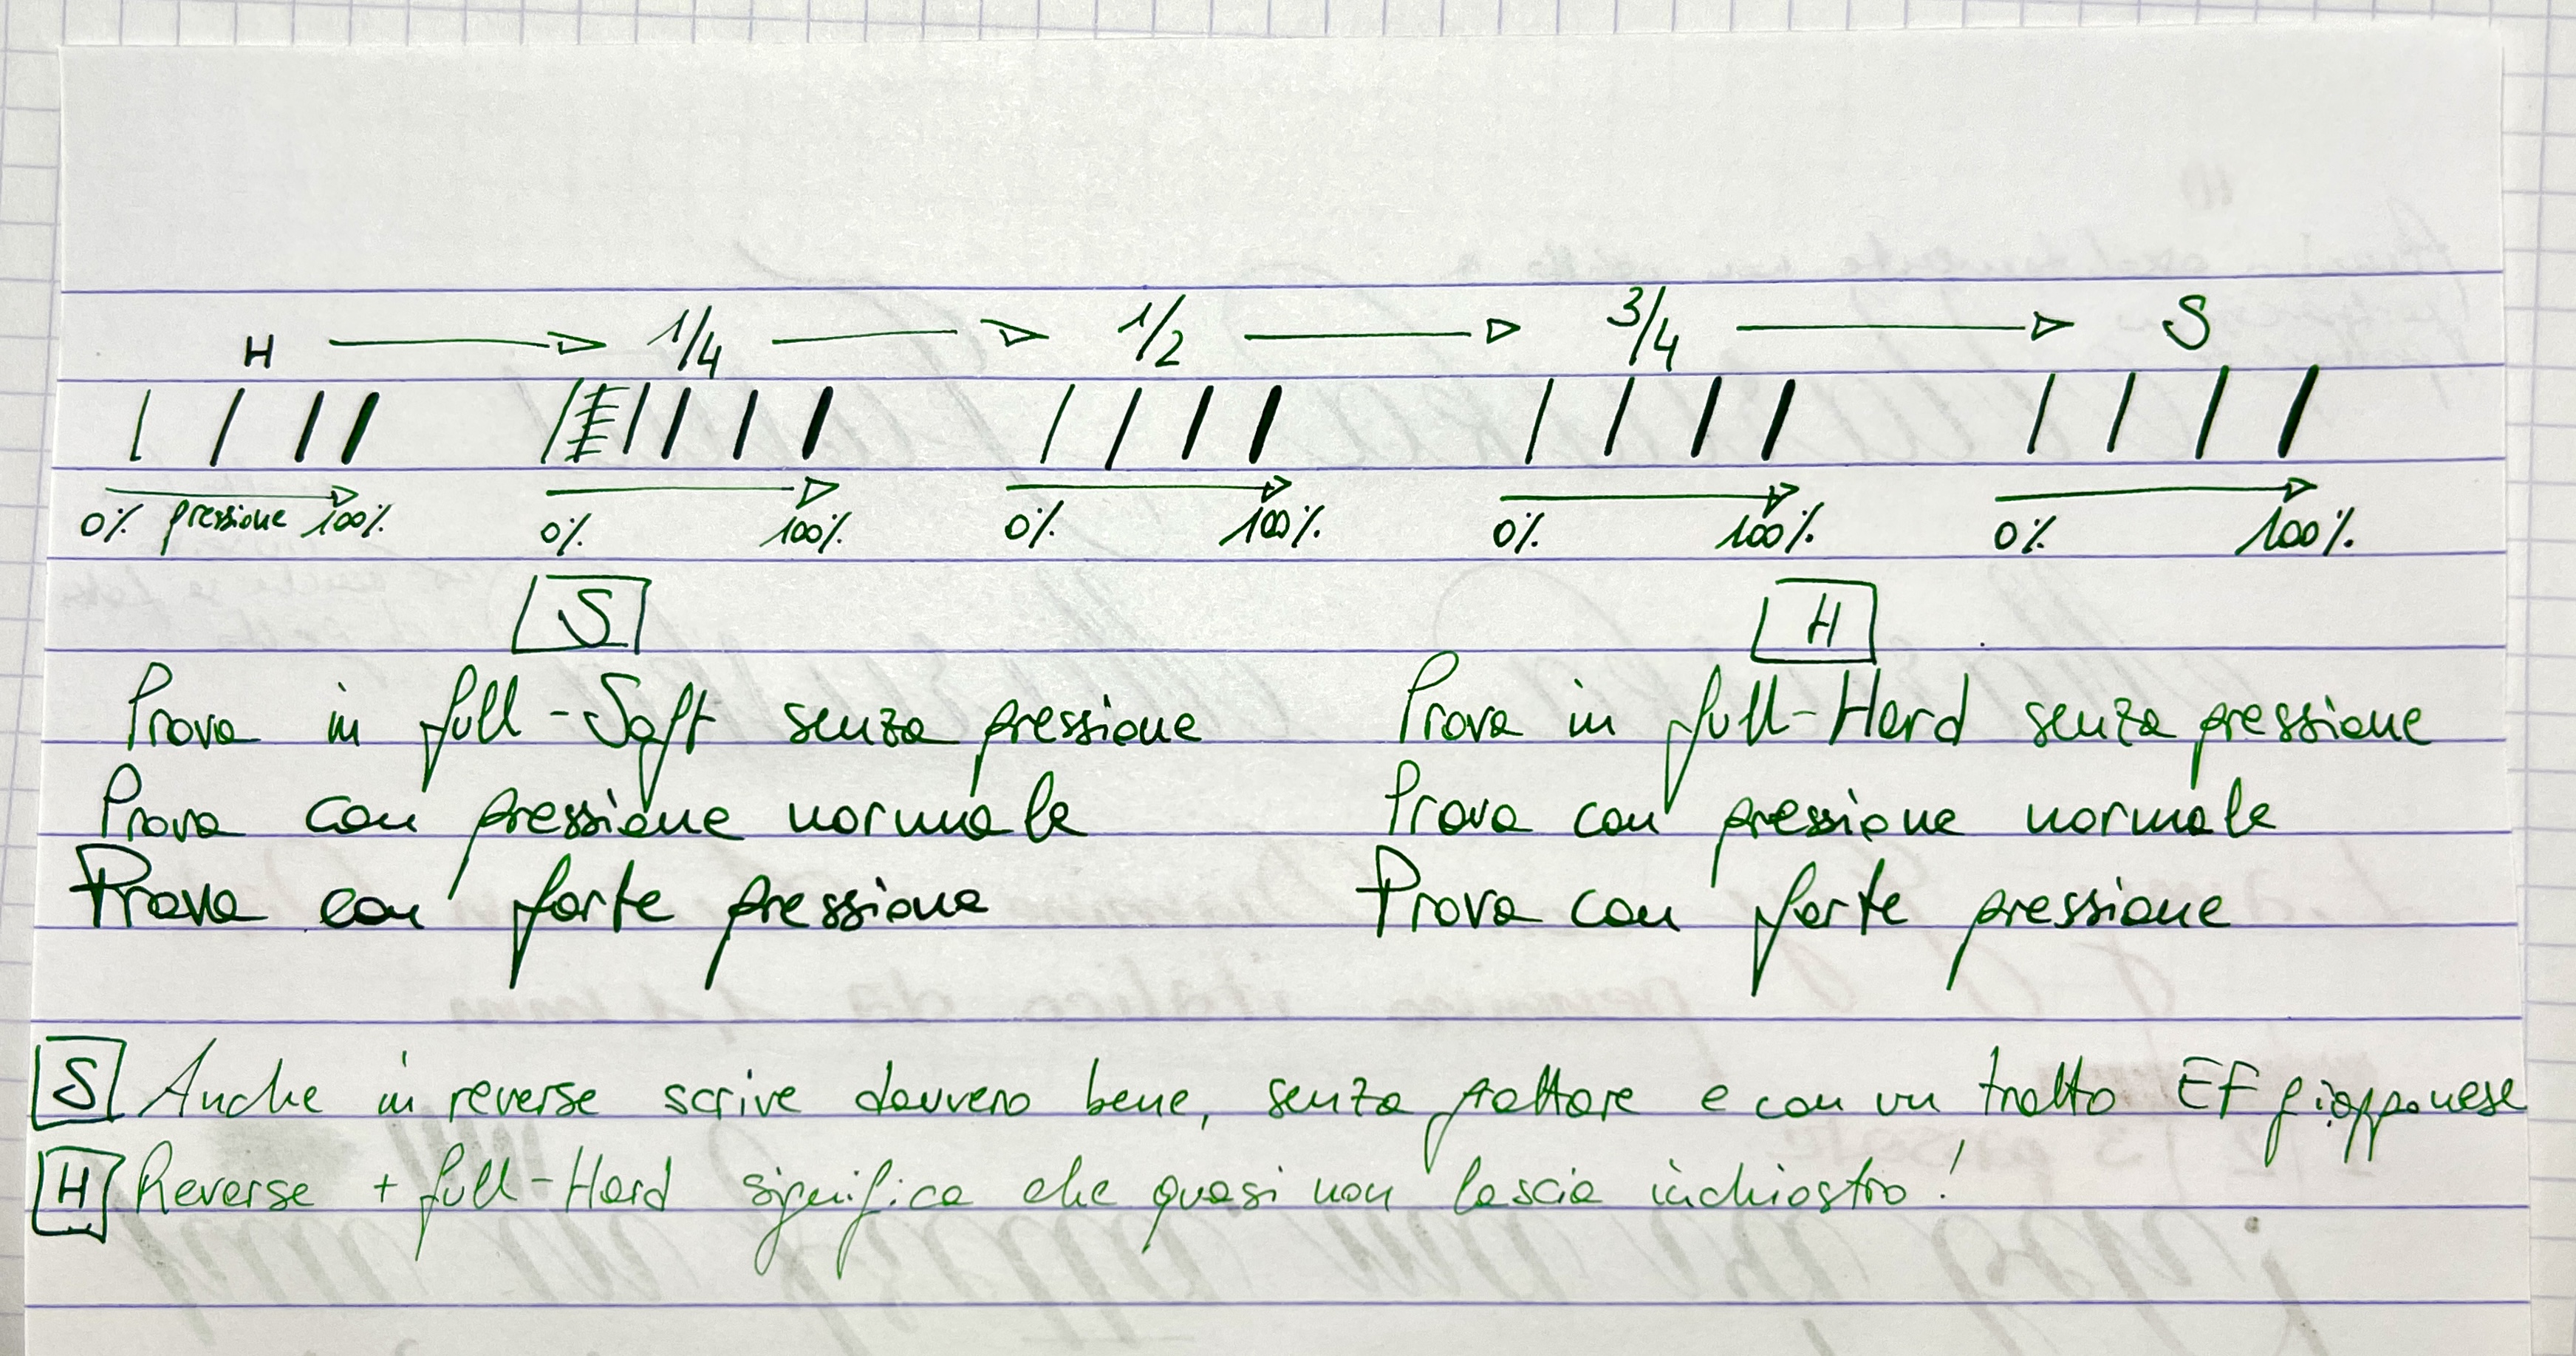 H 1/4 1/2 3/4 S
0% pressione 100% 0% 100% 0% 100% 0% 100% 0% 100%
S H
Prova in full-Soft senza pressione Prova in full-Hard senza pressione
Prova con pressione normale Prova con pressione normale
Prova con forte pressione Prova con forte pressione
S Anche in reverse scrive davvero bene, senza grattare e con un tratto EF giapponese
H Reverse + full-Hard significa che quasi non lascia inchiostro!